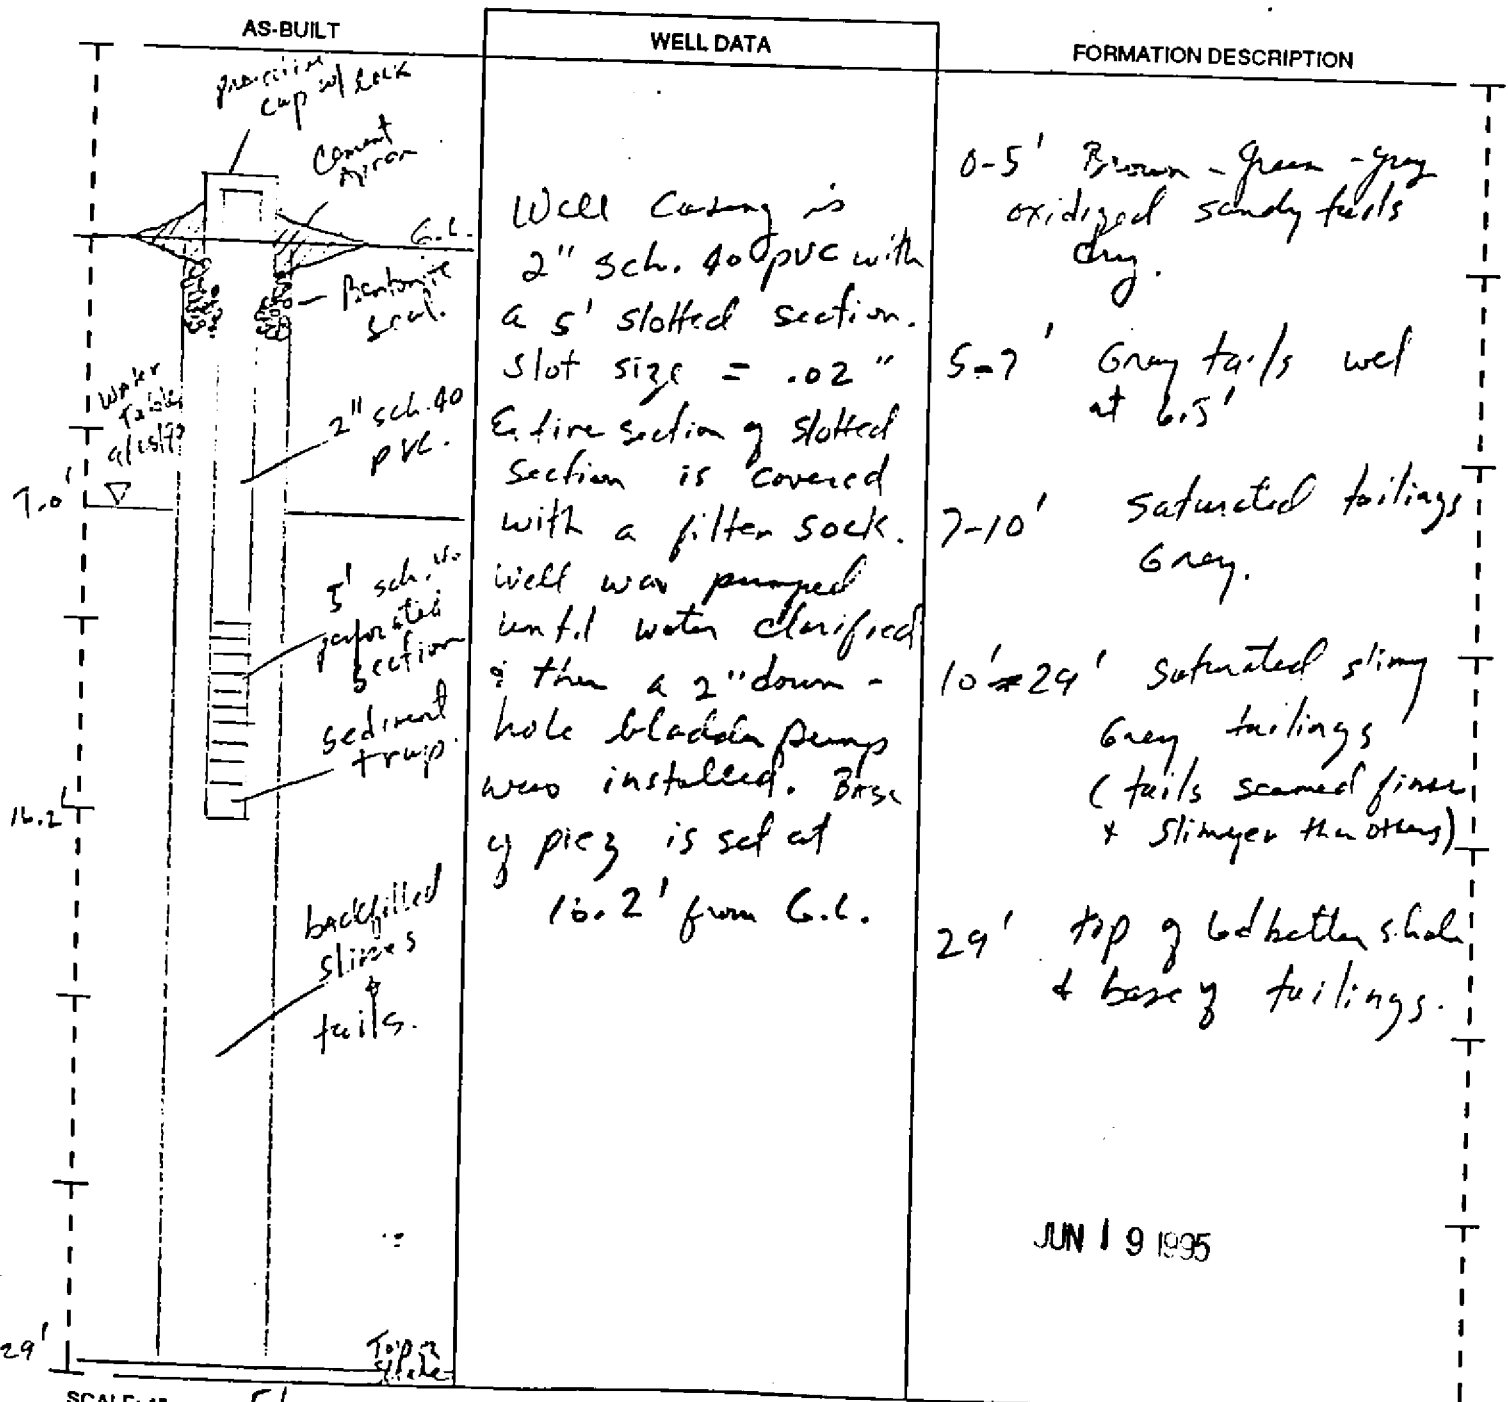 AS-BUILT
WELL DATA
FORMATION DESCRIPTION
cap w/ Lock
Cement
Apron
G.L.
Bentonite
seal.
Water
Table
2" sch. 40
PVC.
7.0'
5' sch. 40
perforated
section
sediment
trap
16.2'
backfilled
slimes
&
tails.
29'
Top of
Shale
SCALE: 1"
5'
Well Casing is
2" sch. 40 pvc with
a 5' slotted section.
Slot size = .02"
Entire section of slotted
section is covered
with a filter sock.
well was pumped
until water clarified
& then a 2" down-
hole bladder pump
was installed. Base
of piez is set at
16.2' from G.L.
0-5' Brown-green-gray
oxidized sandy tails
dry.
5-7' Gray tails wet
at 6.5'
7-10' saturated tailings
Gray.
10'-29' Saturated slimy
Gray tailings
(tails seemed finer
& slimyer than others)
29' top of Ledbetter shale
& base of tailings.
JUN 19 1995